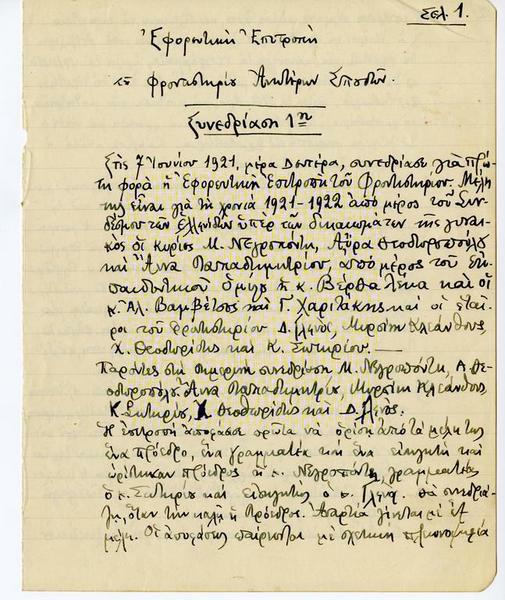 Σελ. 1.
Ἐφορευτικὴ Ἐπιτροπὴ
τοῦ Φροντιστηρίου Ἀνωτέρων Σπουδῶν.
Συνεδρίαση 1η
Στὶς 7 Ἰουνίου 1921, μέρα Δευτέρα, συνεδρίασε γιὰ πρώ-
τη φορὰ ἡ Ἐφορευτικὴ Ἐπιτροπὴ τοῦ Φροντιστηρίου. Μέλη
της εἶναι γιὰ τὴ χρονιὰ 1921-1922 ἀπὸ μέρος τοῦ Συν-
δέσμου τῶν Ἑλληνίδων ὑπὲρ τῶν δικαιωμάτων τῆς γυναι-
κὸς οἱ κυρίες Μ. Νεγροπόντη, Αὔρα Θεοδωροπούλου
καὶ Ἄννα Παπαδημητρίου, ἀπὸ μέρος τοῦ Ἐκ-
παιδευτικοῦ Ὁμίλου ἡ κ. Βέρθα Λέκα καὶ οἱ
κ. Ἀλ. Βαμβέτσος καὶ Γ. Χαριτάκης καὶ οἱ ἑταῖ-
ροι τοῦ Φροντιστηρίου Δ. Γληνός, Μυρσίνη Κλεάνθους,
Χ. Θεοδωρίδης καὶ Κ. Σωτηρίου. —
Παρόντες στὴ σημερινὴ συνεδρίαση Μ. Νεγροπόντη, Α. Θε-
οδωροπούλου, Ἄννα Παπαδημητρίου, Μυρσίνη Κλεάνθους,
Κ. Σωτηρίου, Χ. Θεοδωρίδης καὶ Δ. Γληνός.
Ἡ ἐπιτροπὴ ἀποφάσισε πρῶτα νὰ ὁρίση ἀπὸ τὰ μέλη της
ἕνα πρόεδρο, ἕνα γραμματέα καὶ ἕνα εἰσηγητὴ καὶ
ὡρίστηκαν πρόεδρος ἡ κ. Νεγροπόντη, γραμματέας
ὁ κ. Σωτηρίου καὶ εἰσηγητὴς ὁ κ. Γληνός. Θὰ συνεδριά-
ζη, ὅταν τὴν καλῆ ἡ Πρόεδρος. Ἀπαρτία γίνεται μὲ ἓξ
μέλη. Οἱ ἀποφάσεις παίρνονται μὲ σχετικὴ πλειονοψηφία